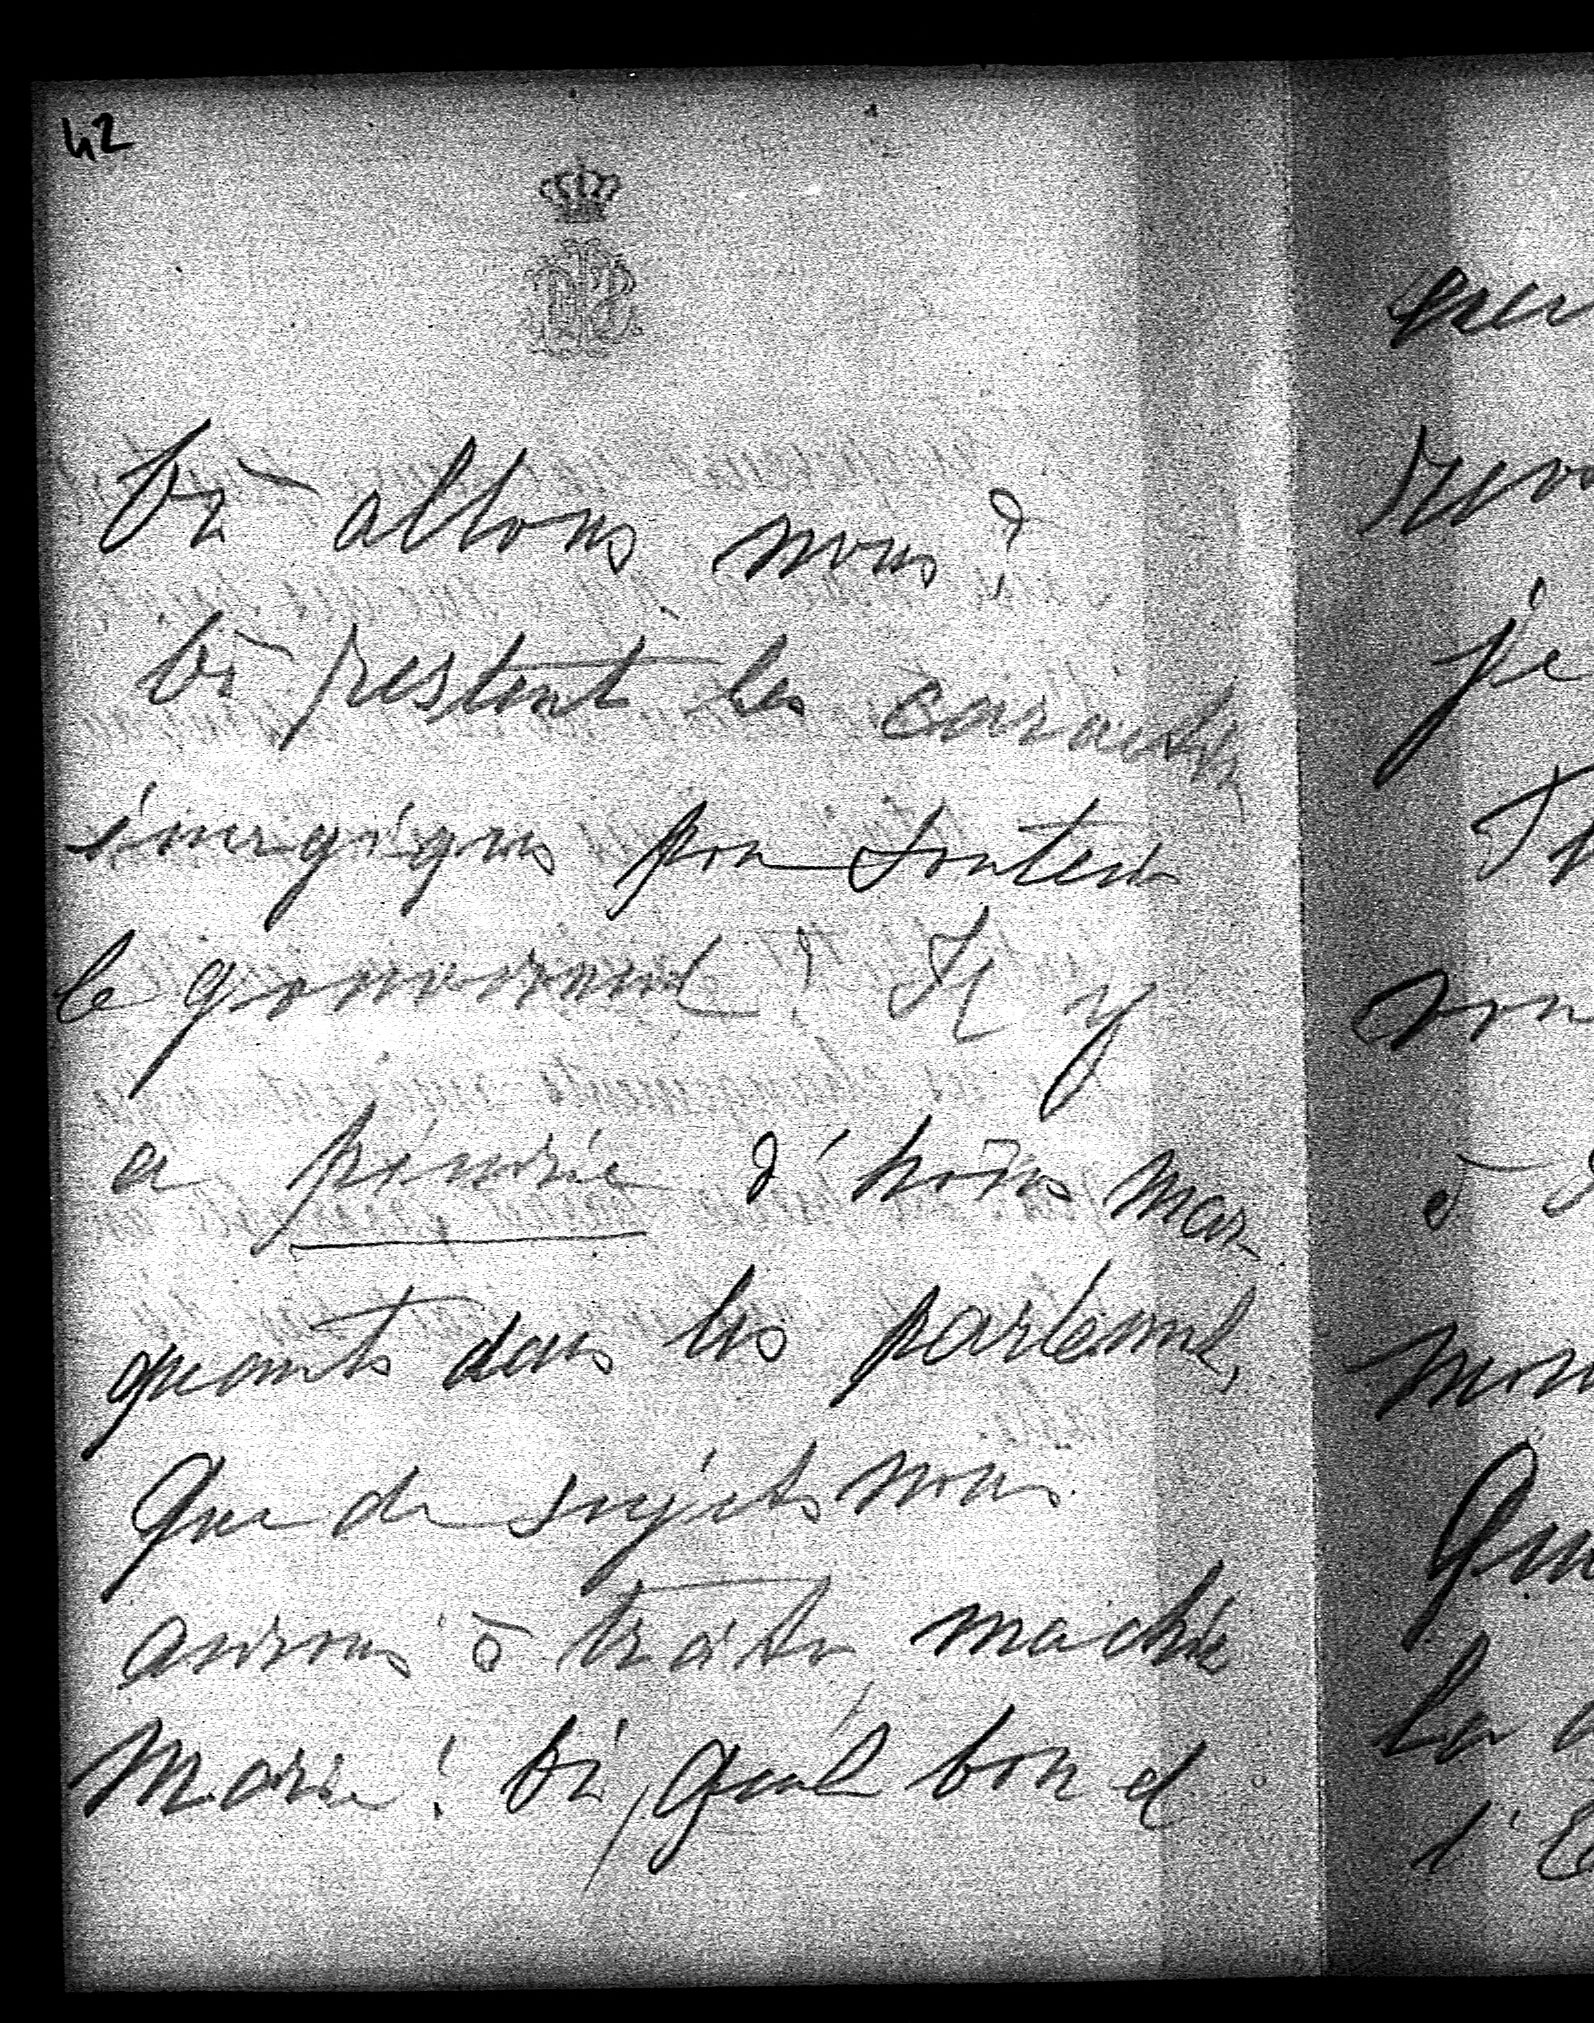 42
Où allons nous?
Où restent les caractères
énergiques pour soutenir
le gouvernement? Il y
a pénurie d'hommes mar-
quants dans les parlements,
Que de sujets nous
aurons à traiter ma chère
Marie! Si, quel bon et
je
à